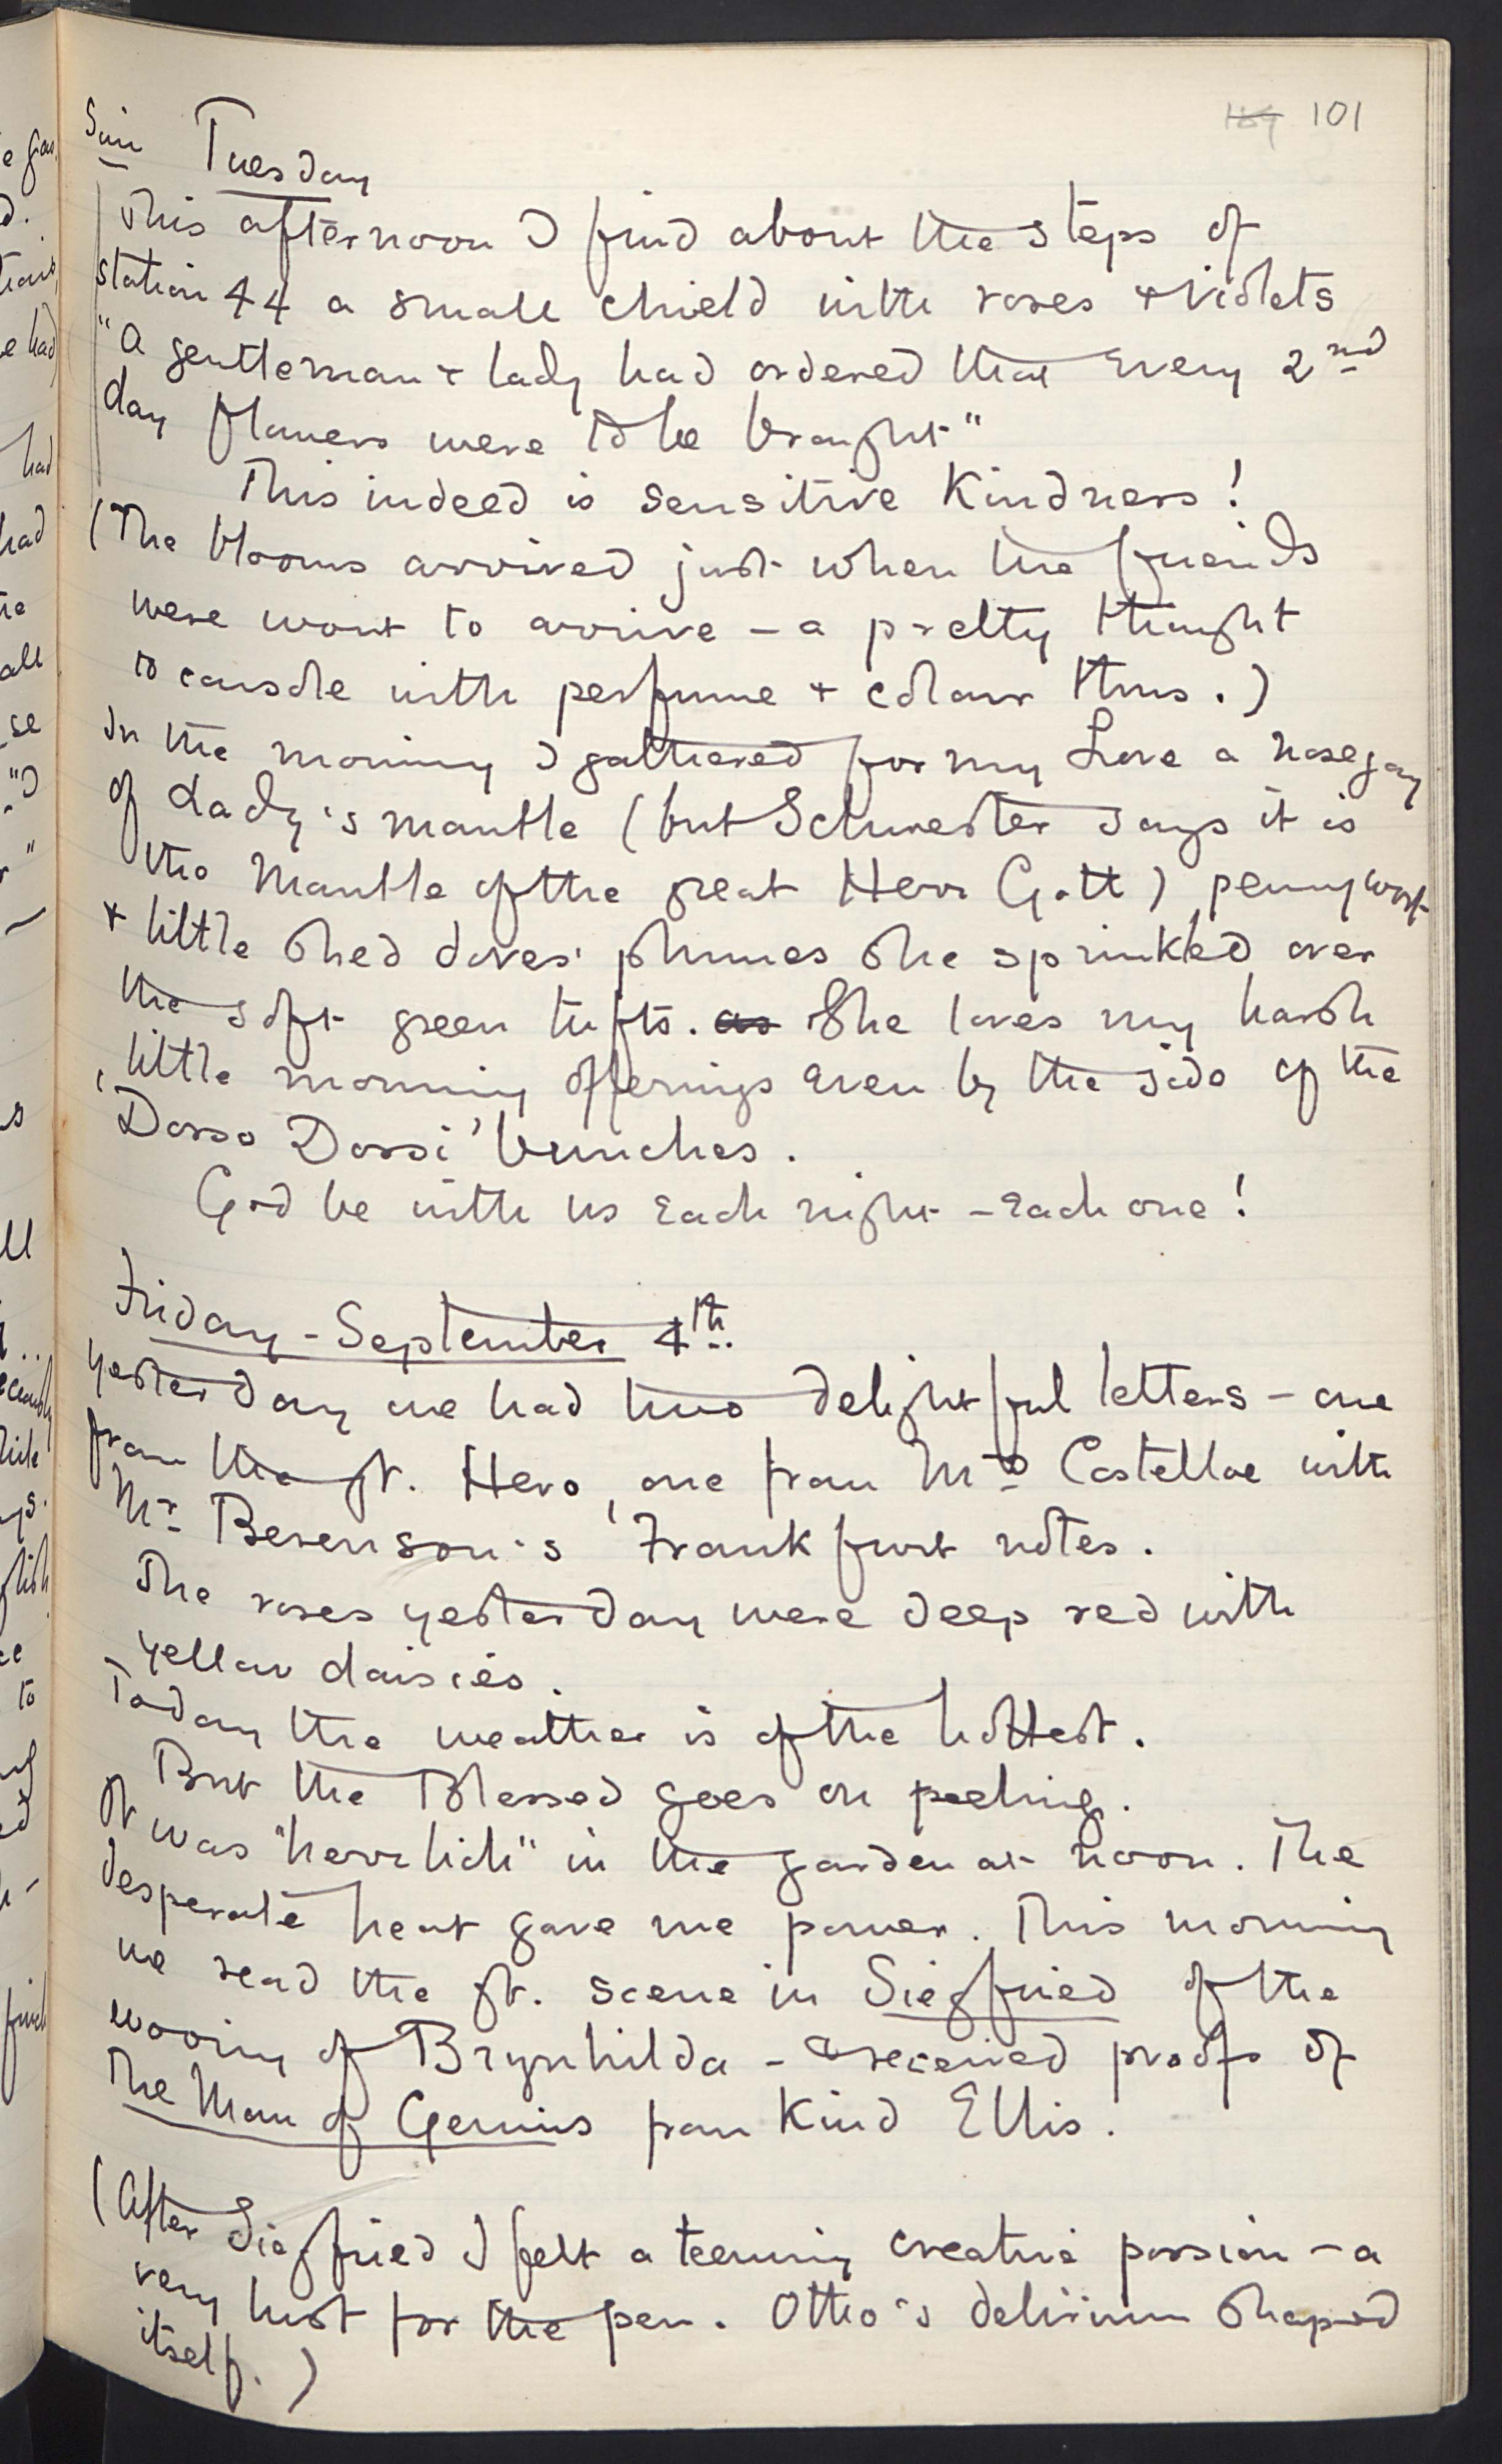 101
Sim Tuesday
This afternoon I find about the steps of
station 44 a small chield with roses + violets
"A gentleman + lady had ordered that every 2nd
day flowers were to be brought"
This indeed is sensitive kindness!
(The blooms arrived just when the friends
were wont to arrive – a pretty thought
to console with perfume + colour thus.)
In the morning I gathered for my Love a nosegay
of Lady's mantle (but Schwester says it is
the Mantle of the great Herr Gott) pennywort
+ little shed doves' plumes she sprinkled over
the soft green tufts. as She loves my harsh
little morning offerings even by the side of the
'Dosso Dossi' bunches.
God be with us each night – each one!
Friday – September 4th.
Yesterday we had two delightful letters – one
from the gt. Hero, one from Mrs Costelloe with
Mr Berenson's Frankfurt notes.
The roses yesterday were deep red with
yellow daisies.
Today the weather is of the hottest.
But the Blessed goes on peeling.
It was "herrlich" in the garden at noon. The
desperate heat gave me power. This morning
we read the gt. scene in Siegfried of the
wooing of Brynhilda – & received proofs of
The Man of Genius from kind Ellis.
(After Siegfried I felt a teeming creative passion – a
very lust for the pen. Otho's delirium shaped
itself.)